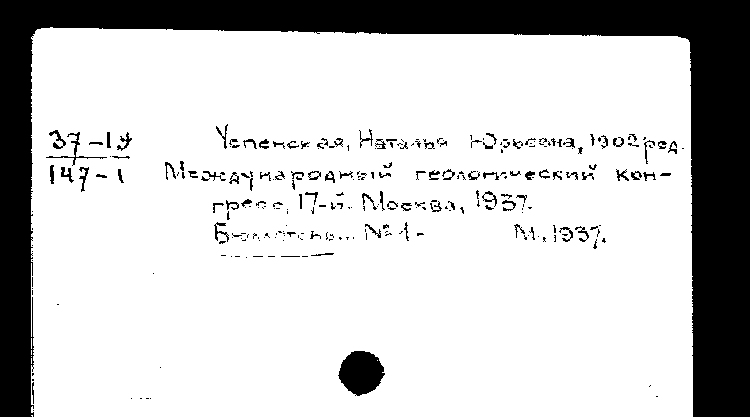 37-19 Успенская, Наталья Юрьевна, 1902 ред.
147-1 Международный геологический кон-
гресс, 17-й. Москва, 1937.
Бюллетень... №1- М., 1937.